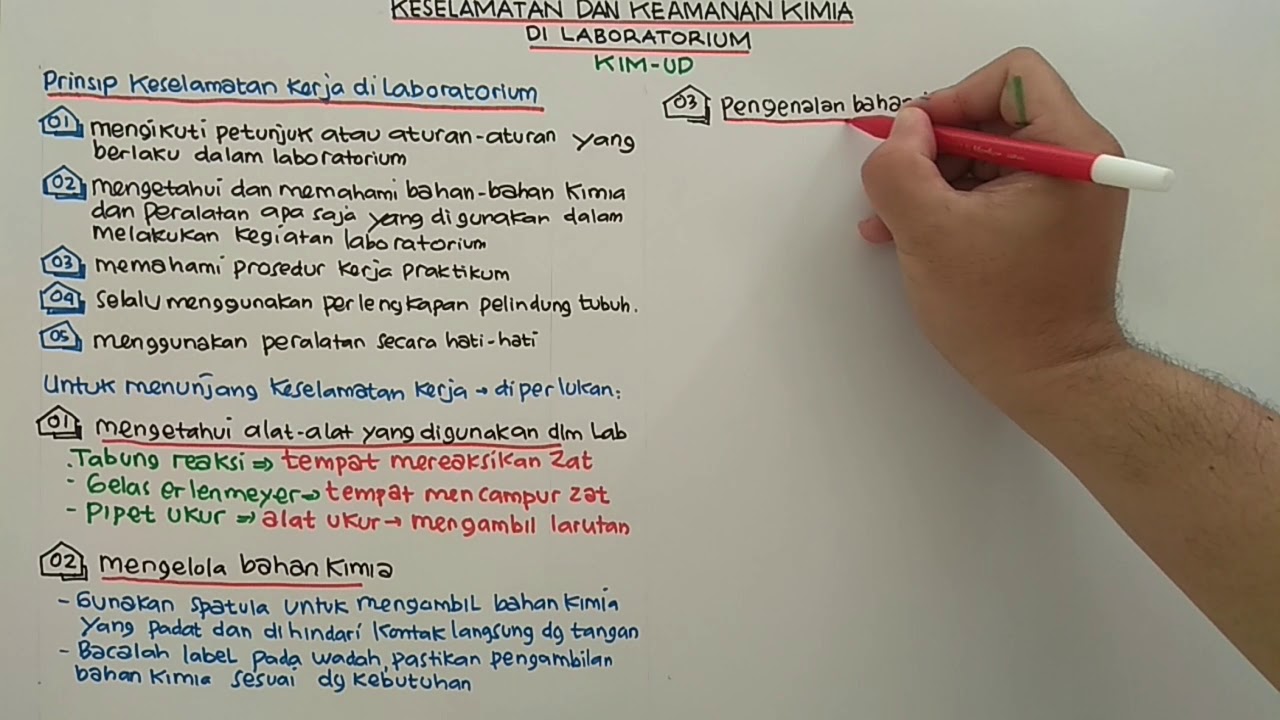 KESELAMATAN DAN KEAMANAN KIMIA
DI LABORATORIUM
KIM-UD
Prinsip Keselamatan Kerja di Laboratorium
01 mengikuti petunjuk atau aturan-aturan yang
berlaku dalam laboratorium
02 mengetahui dan memahami bahan-bahan Kimia
dan peralatan apa saja yang digunakan dalam
melakukan kegiatan laboratorium
03 memahami prosedur kerja praktikum
04 selalu menggunakan perlengkapan pelindung tubuh.
05 menggunakan peralatan secara hati-hati
Untuk menunjang keselamatan kerja → diperlukan:
01 mengetahui alat-alat yang digunakan dlm Lab
.Tabung reaksi ⇒ tempat mereaksikan zat
- Gelas erlenmeyer ⇒ tempat mencampur zat
- Pipet ukur ⇒ alat ukur → mengambil larutan
02 mengelola bahan kimia
- Gunakan spatula untuk mengambil bahan kimia
yang padat dan dihindari kontak langsung dg tangan
- Bacalah label pada wadah, pastikan pengambilan
bahan kimia sesuai dg kebutuhan
03 Pengenalan bahan